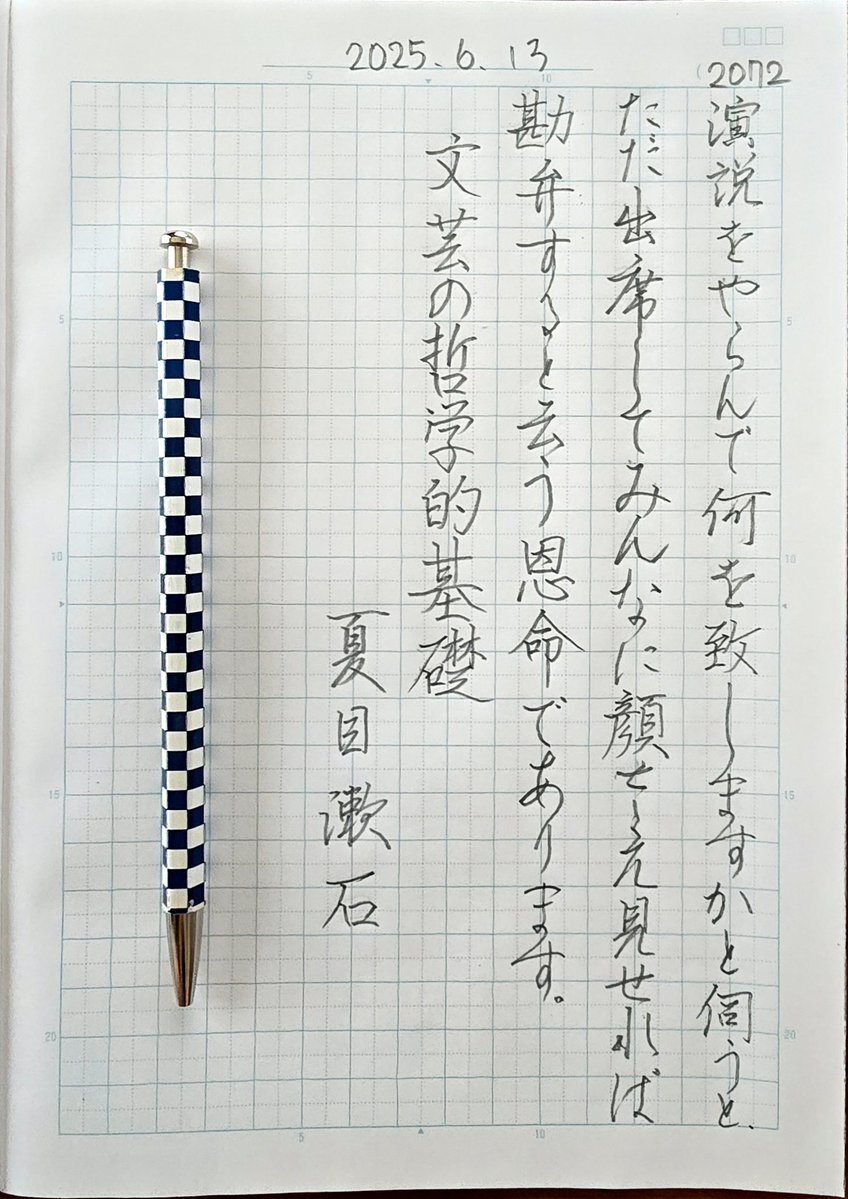 2025.6.13
2072
演説をやらんで何を致しますかと伺うと、
ただ出席してみんなに顔さえ見せれば
勘弁すると云う恩命であります。
文芸の哲学的基礎
夏目漱石
5
10
5
10
15
20
5
10
15
20
5
10